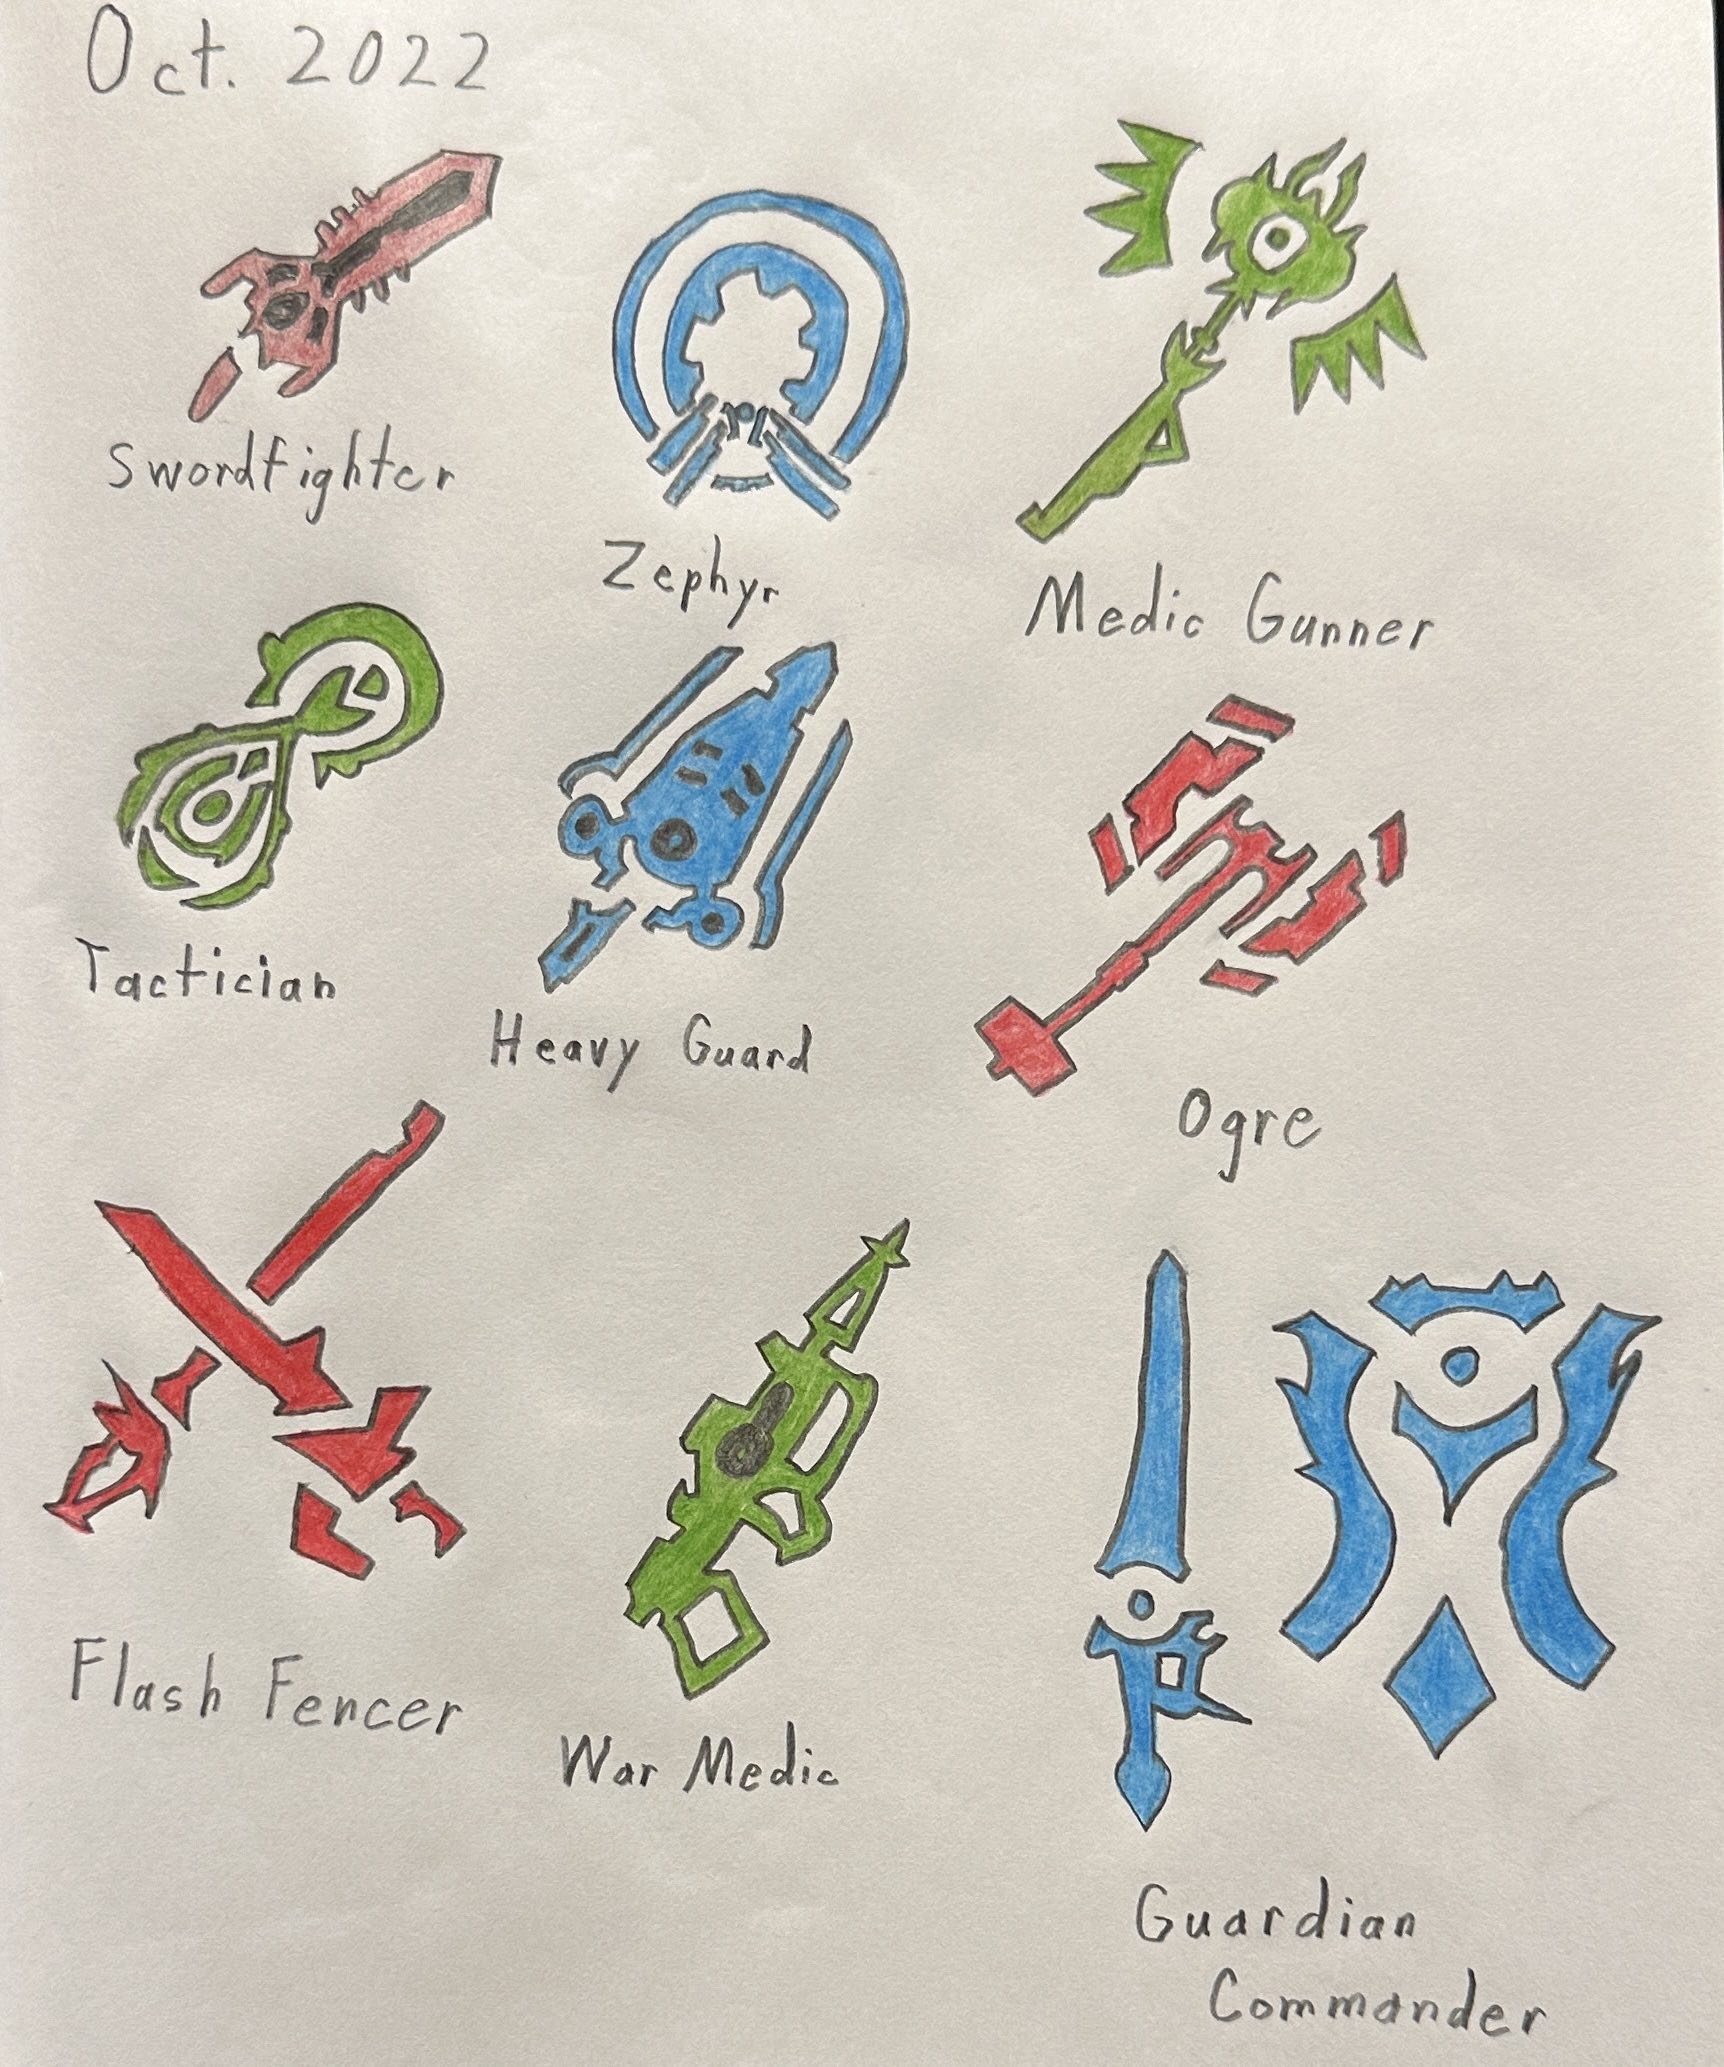 Oct. 2022
Swordfighter
Zephyr
Medic Gunner
Tactician
Heavy Guard
Ogre
Flash Fencer
War Medic
Guardian
Commander